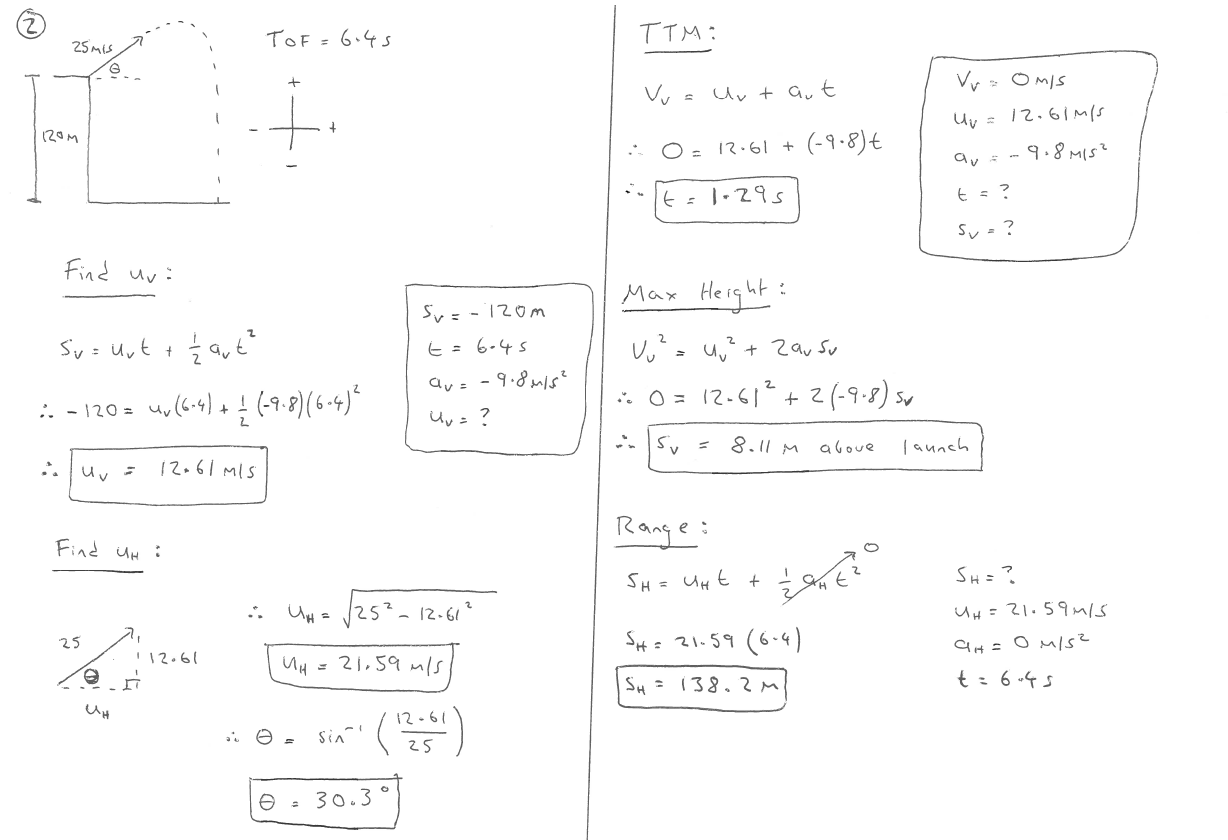 ②
25 m/s
θ
120 m
TOF = 6.4 s
+
- +
-
Find u_v :
s_v = u_v t + 1/2 a_v t²
∴ -120 = u_v (6.4) + 1/2 (-9.8)(6.4)²
∴ u_v = 12.61 m/s
s_v = -120 m
t = 6.4 s
a_v = -9.8 m/s²
u_v = ?
Find u_H :
25
12.61
θ
u_H
∴ u_H = √(25² - 12.61²)
u_H = 21.59 m/s
∴ θ = sin⁻¹ (12.61/25)
θ = 30.3°
TTM :
V_v = u_v + a_v t
∴ 0 = 12.61 + (-9.8)t
∴ t = 1.29 s
V_v = 0 m/s
u_v = 12.61 m/s
a_v = -9.8 m/s²
t = ?
s_v = ?
Max Height :
V_v² = u_v² + 2a_v s_v
∴ 0 = 12.61² + 2(-9.8) s_v
∴ s_v = 8.11 m above launch
Range :
s_H = u_H t + 1/2 a_H t² 0
s_H = 21.59 (6.4)
s_H = 138.2 m
s_H = ?
u_H = 21.59 m/s
a_H = 0 m/s²
t = 6.4 s